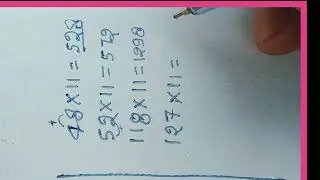 48×11=528
52×11=572
118×11=1298
127×11=